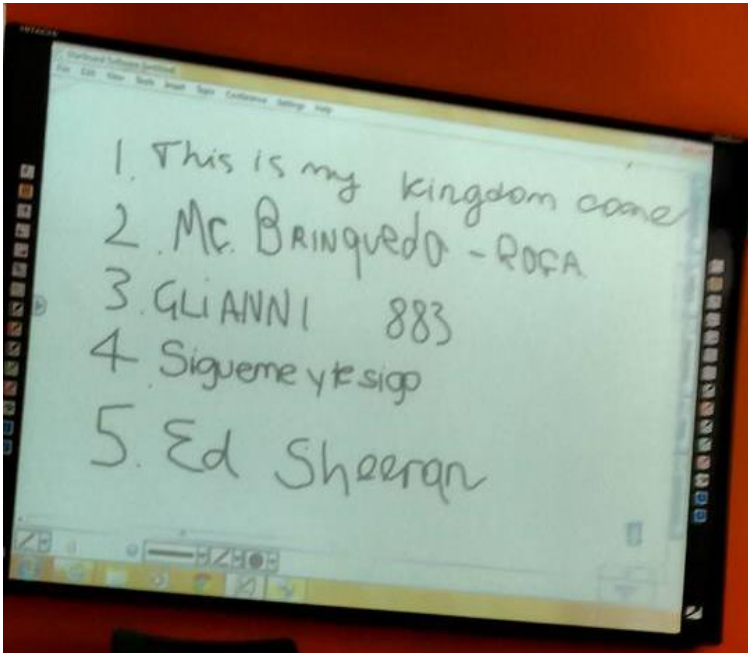 HITACHI
StarBoard Software [untitled]
File Edit View Tools Insert Topic Conference Settings Help
1. This is my kingdom come
2. MC. BRINquedo - ROÇA
3. GLi ANNI 883
4 Sigueme y te sigo
5. Ed Sheeran